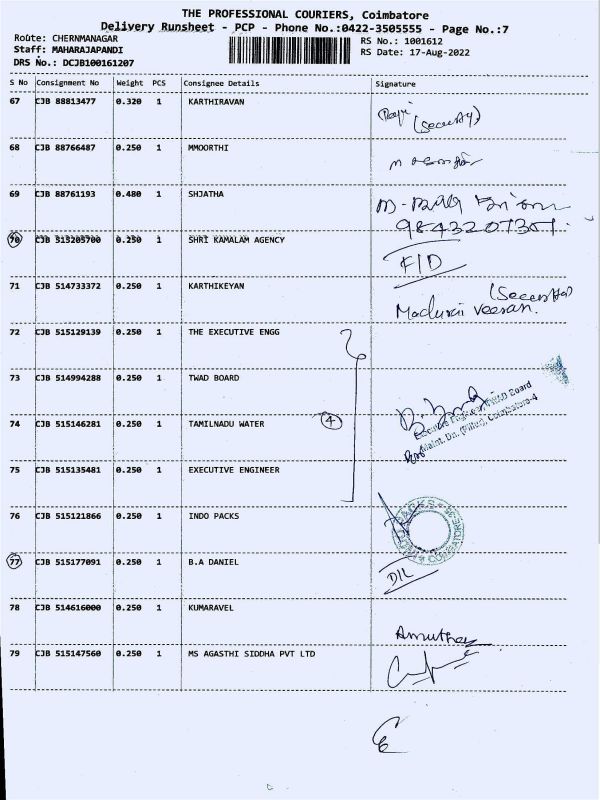 THE PROFESSIONAL COURIERS, Coimbatore
Delivery Runsheet - PCP - Phone No.:0422-3505555 - Page No.:7
Route: CHERNMANAGAR
RS No.: 1001612
Staff: MAHARAJAPANDI
RS Date: 17-Aug-2022
DRS No.: DCJB100161207
S No Consignment No Weight PCS Consignee Details Signature
67 CJB 88813477 0.320 1 KARTHIRAVAN
(Security)
68 CJB 88766487 0.250 1 MMOORTHI
69 CJB 88761193 0.480 1 SHJATHA
9843207351
70 CJB 515205700 0.250 1 SHRI KAMALAM AGENCY
F/D
71 CJB 514733372 0.250 1 KARTHIKEYAN
(Security)
Madurai Veeran.
72 CJB 515129139 0.250 1 THE EXECUTIVE ENGG
73 CJB 514994288 0.250 1 TWAD BOARD
74 CJB 515146281 0.250 1 TAMILNADU WATER 4
Executive Engineer, TWAD Board
Maint. Dn. (Filter), Coimbatore-4
75 CJB 515135481 0.250 1 EXECUTIVE ENGINEER
76 CJB 515121866 0.250 1 INDO PACKS
77 CJB 515177091 0.250 1 B.A DANIEL
D/L
78 CJB 514616000 0.250 1 KUMARAVEL
Amutha
79 CJB 515147560 0.250 1 MS AGASTHI SIDDHA PVT LTD